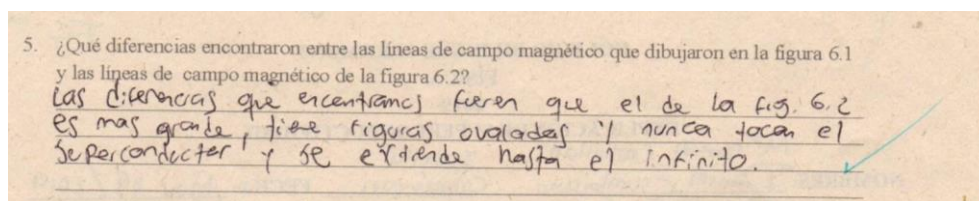 5. ¿Qué diferencias encontraron entre las líneas de campo magnético que dibujaron en la figura 6.1
y las líneas de campo magnético de la figura 6.2?
Las diferencias que encontramos fueren que el de la fig. 6.2
es mas grande, tiene figuras ovaladas y nunca tocan el
superconductor, y se extiende hasta el infinito.